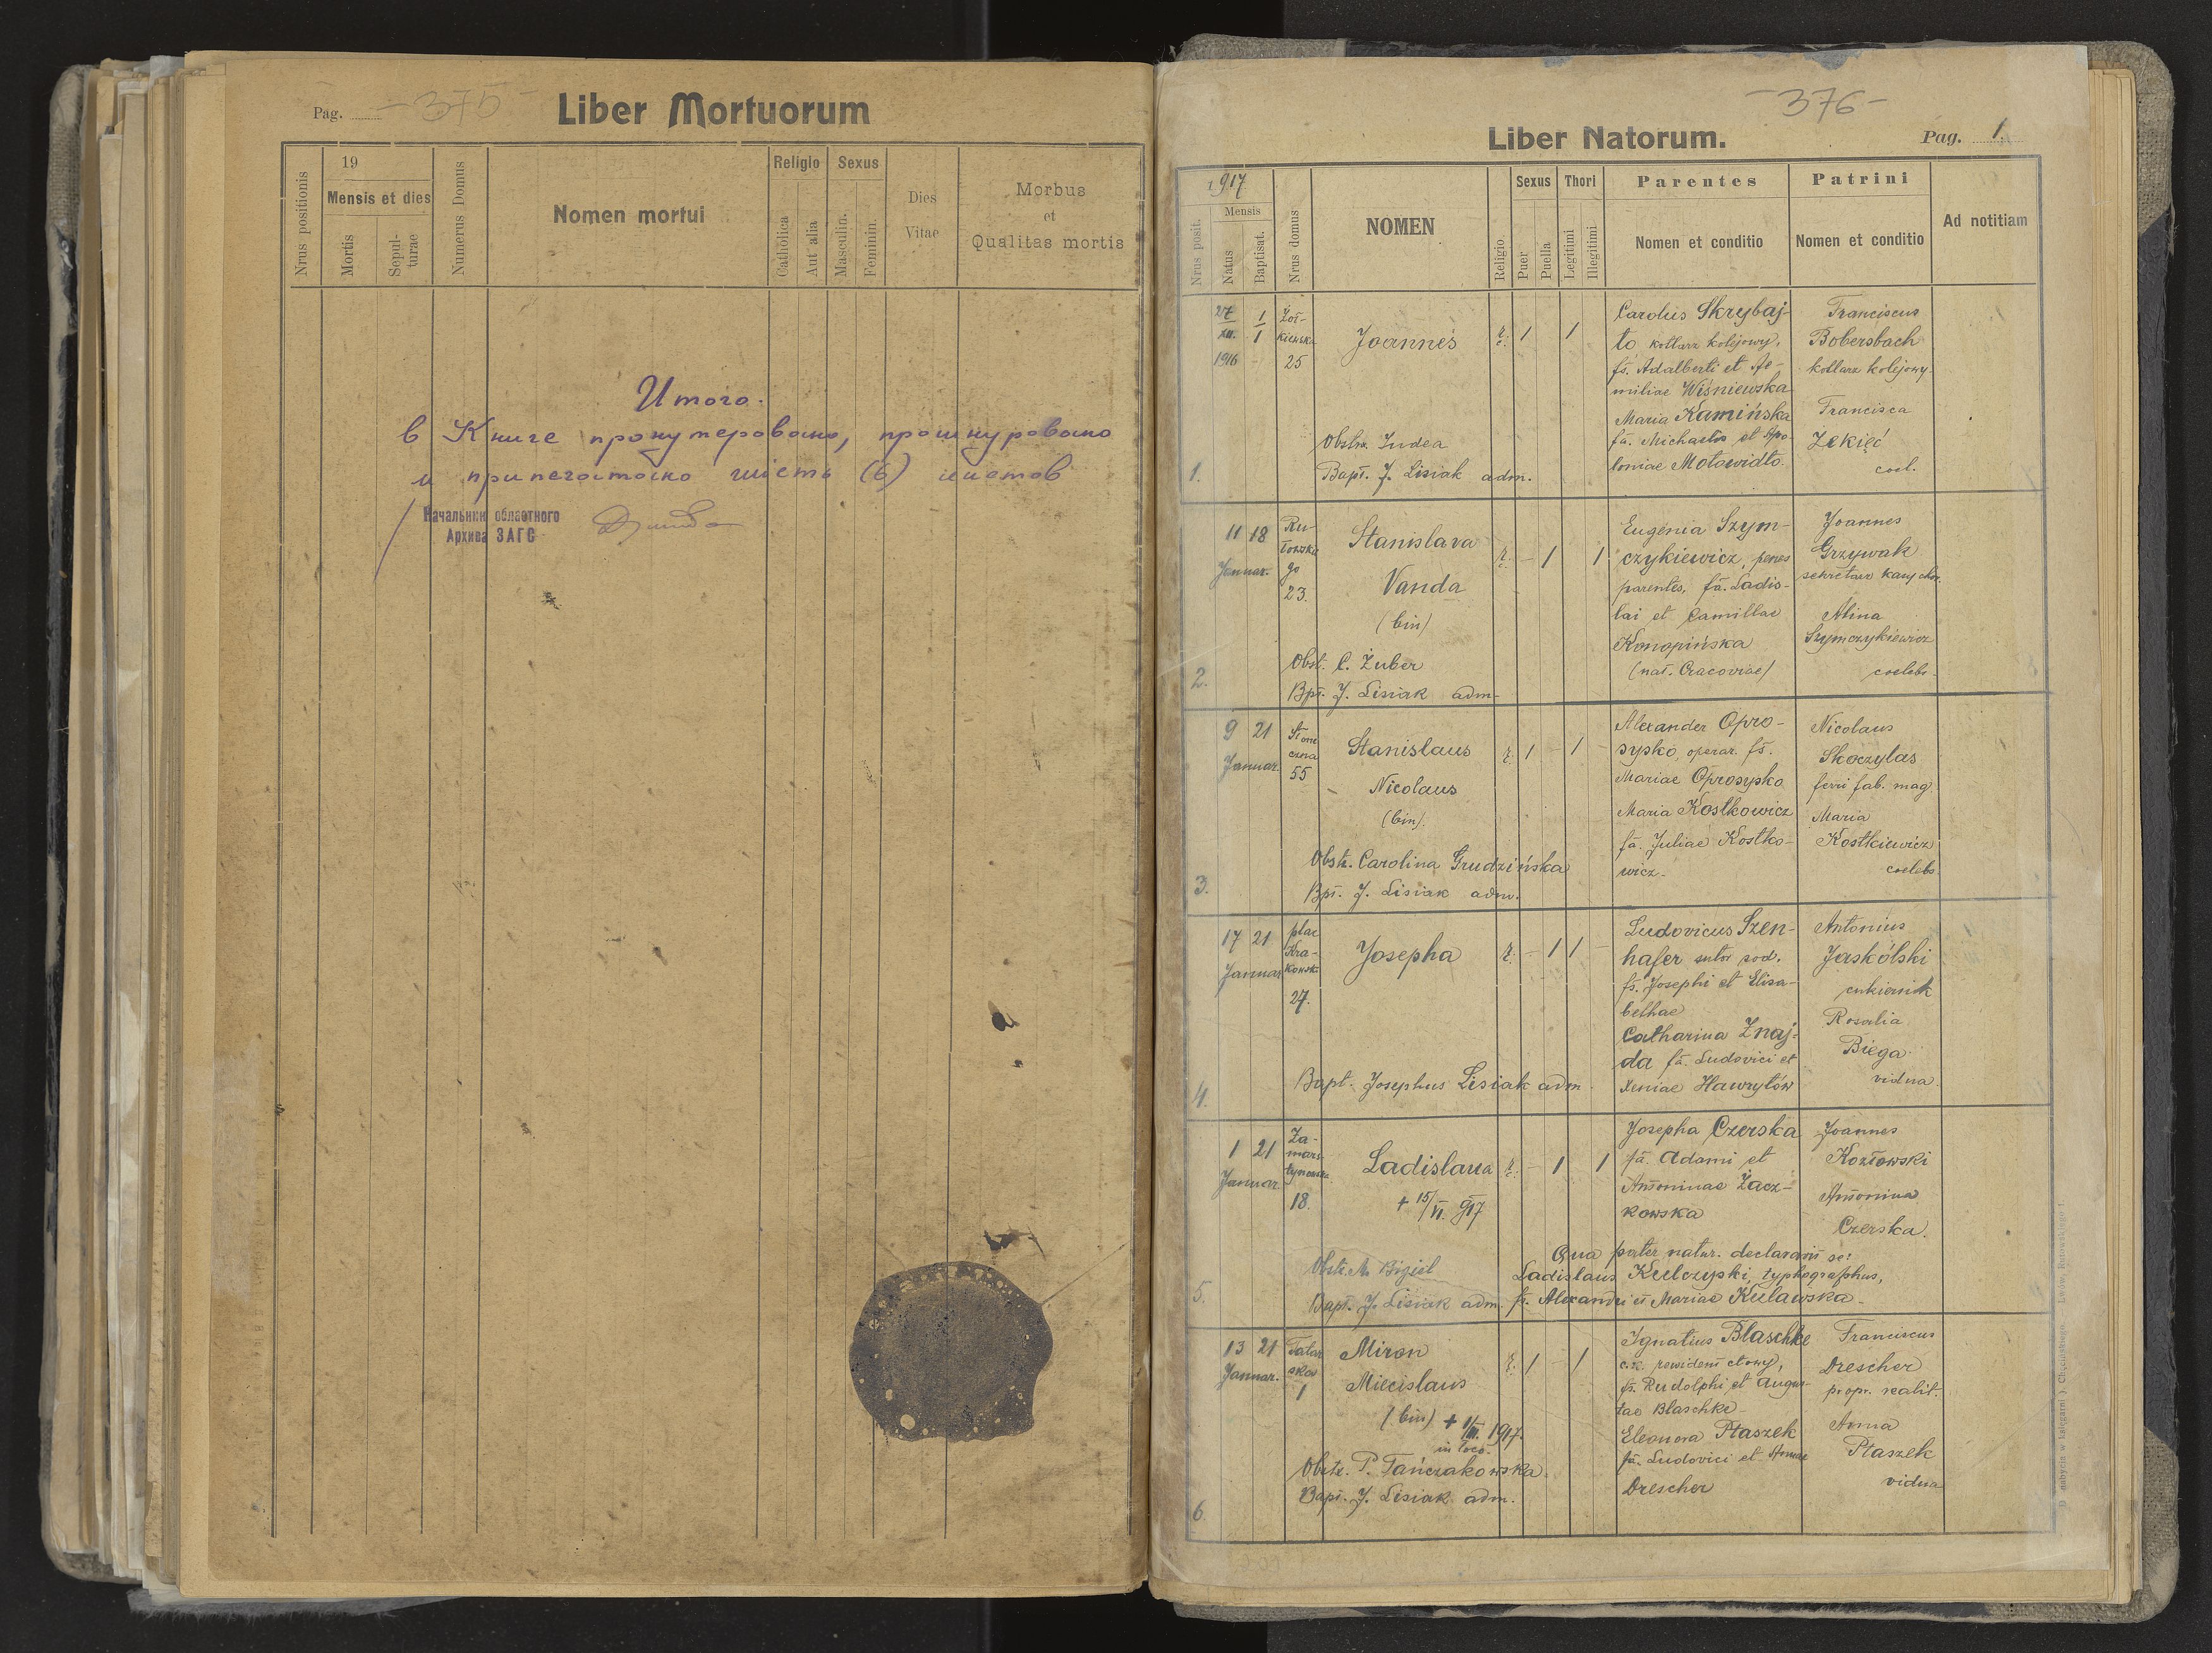 Pag. -375-
Liber Mortuorum
Nrus positionis
19
Mensis et dies
Mortis
Sepul-
turae
Numerus Domus
Nomen mortui
Religio
Catholica
Aut alia
Sexus
Masculin.
Feminin.
Dies
Vitae
Morbus
et
Qualitas mortis
Итого.
в Книге пронумеровано, прошнуровано
и припечатано шесть (6) листов
Начальник областного
Архива ЗАГС
-376-
Liber Natorum.
Pag. 1.
Nrus posit.
1917
Mensis
Natus
Baptisat.
Nrus domus
NOMEN
Religio
Sexus
Puer
Puella
Thori
Legitimi
Illegitimi
Parentes
Nomen et conditio
Patrini
Nomen et conditio
Ad notitiam
1.
27
XII.
1916
1
1
Żół-
kiewska
25
Joannes
r. c. 1 1
Obstr. Judea
Bapt. J. Lisiak adm.
Carolus Skrybaj-
to kotlarz kolejowy,
fs. Adalberti et Ae-
miliae Wiśniewska
Maria Kamińska
fa. Michaelis et Apo-
loniae Motowidło.
Franciscus
Bobersbach
kotlarz kolejowy.
Francisca
Zekieć
coel.
2.
11 18
Januar.
Ru-
towskie
go
23.
Stanislava
Vanda
(bin)
r. c. - 1 1
Obst. C. Żuber
Bpt. J. Lisiak adm.
Eugenia Szym-
czykiewicz, penes
parentes, fa. Ladis-
lai et Camillae
Konopińska
(nat. Cracoviae)
Joannes
Grzywak
sekretarz kasy chor.
Alina
Szymczykiewicz
coelebs.
3.
9 21
Januar.
Słone
czna
55
Stanislaus
Nicolaus
(bin).
r. c. 1 - 1 -
Obstr. Carolina Grudzińska
Bpt. J. Lisiak adm.
Alexander Opro-
sypko, operar. fs.
Mariae Oprosypko
Maria Kostkowicz
fa. Juliae Kostko-
wicz.
Nicolaus
Skoczylas
ferri fab. mag.
Maria
Kostkiewicz
coelebs
4.
17 21
Januar
plac
Kra-
kowsk.
27.
Josepha
r. c. - 1 1 -
Bapt. Josephus Lisiak adm.
Ludovicus Szen-
hafer sutor sod.
fs. Josephi et Elisa-
bethae
Catharina Znaj-
da fa. Ludovici et
Xeniae Hawryłów
Antonius
Jaskólski
cukiernik
Rosalia
Biega
vidua.
5.
1 21
Januar.
Za-
mars-
tynowska
18.
Ladislaua
+ 15/VI. 917
r. c. - 1 1
Obstr. A. Bigiel
Bapt. J. Lisiak adm.
Josepha Czerska
fa. Adami et
Antoninae Zacz-
kowska
Joannes
Kozłowski
Antonina
Czerska.
Qua pater natur. declaravit se:
Ladislaus Kulczyski, typhographus,
fs. Alexandri et Mariae Kulawska.
6.
13 21
Januar.
Tatar
ska
1
Miron
Miecislaus
(bin) + 1/III. 1917.
in loco.
r. c. 1 - 1
Obstr. P. Tańczakowska.
Bapt. J. Lisiak adm.
Ignatius Blaschke
c.k. rewident cłowy,
fs. Rudolphi et Augus-
tae Blaschke
Eleonora Ptaszek
fa. Ludovici et Annae
Drescher
Franciscus
Drescher
propr. realit.
Anna
Ptaszek
vidua